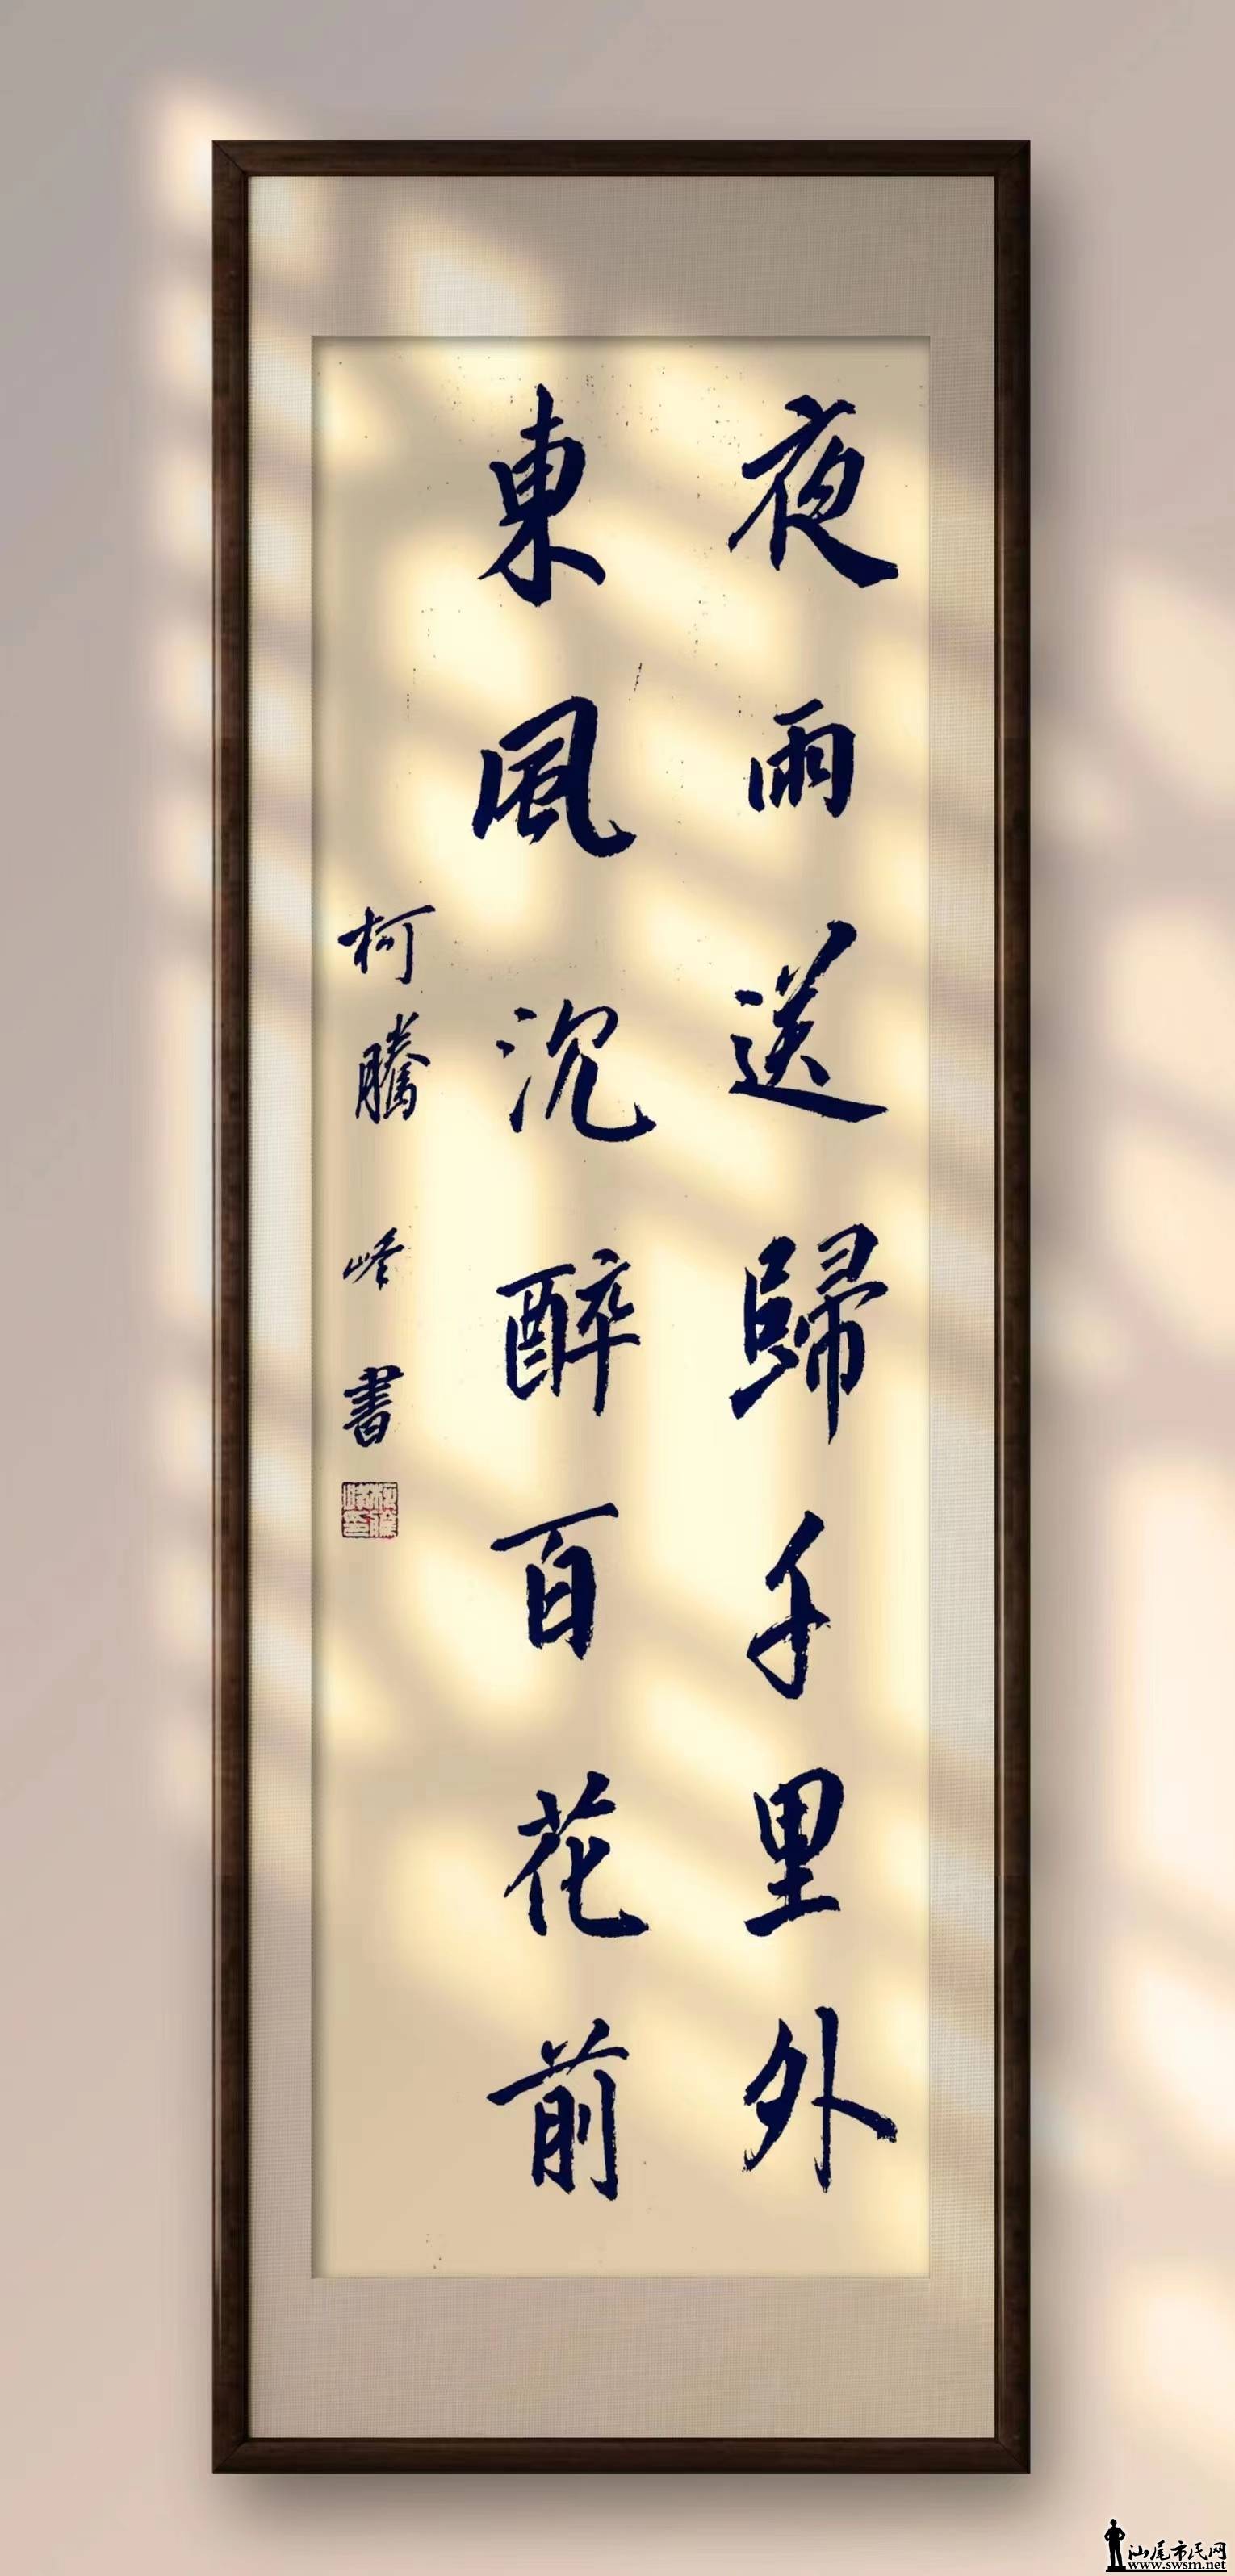 夜雨送歸千里外
東風沉醉百花前
柯騰峰書
汕尾市民网
www.swsm.net